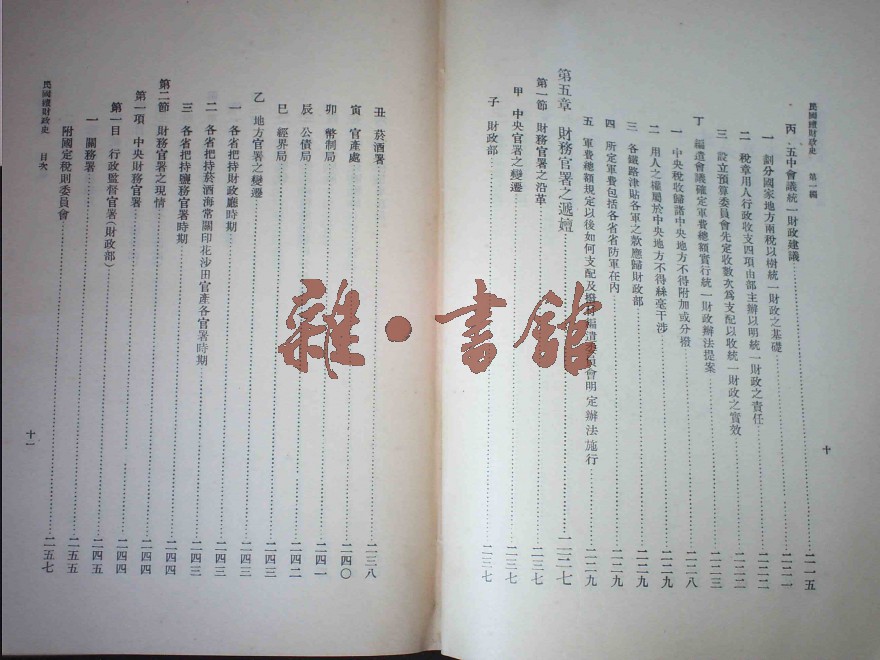 民國續財政史 第一編
丙、五中會議統一財政建議 二一五
一 劃分國家地方兩稅以樹統一財政之基礎 二二一
二 稅章用人行政收支四項由部主辦以明統一財政之責任 二二二
三 設立預算委員會先定收數次爲支配以收統一財政之實效 二二二
丁 編遣會議確定軍費總額實行統一財政辦法提案 二二三
一 中央稅收歸諸中央地方不得附加或分撥 二二八
二 用人之權屬於中央地方不得絲毫干涉 二二九
三 各鐵路津貼各軍之款應歸財政部 二二九
四 所定軍費包括各省省防軍在內 二二九
五 軍費總額規定以後如何支配及撥付編遣委員會明定辦法施行 二二九
第五章 財務官署之遞嬗 二三七
第一節 財務官署之沿革 二三七
甲 中央官署之變遷 二三七
子 財政部 二三七
十
丑 菸酒署 二三八
寅 官產處 二四〇
卯 幣制局 二四一
辰 公債局 二四二
巳 經界局 二四三
乙 地方官署之變遷 二四三
一 各省把持財政廳時期 二四三
二 各省把持菸酒海常關印花沙田官產各官署時期 二四三
三 各省把持鹽務官署時期 二四四
第二節 財務官署之現情 二四四
第一項 中央財務官署 二四四
第一目 行政監督官署(財政部) 二四五
一 關務署 二五五
附國定稅則委員會 二五七
民國續財政史 目次
十一
雜·書館